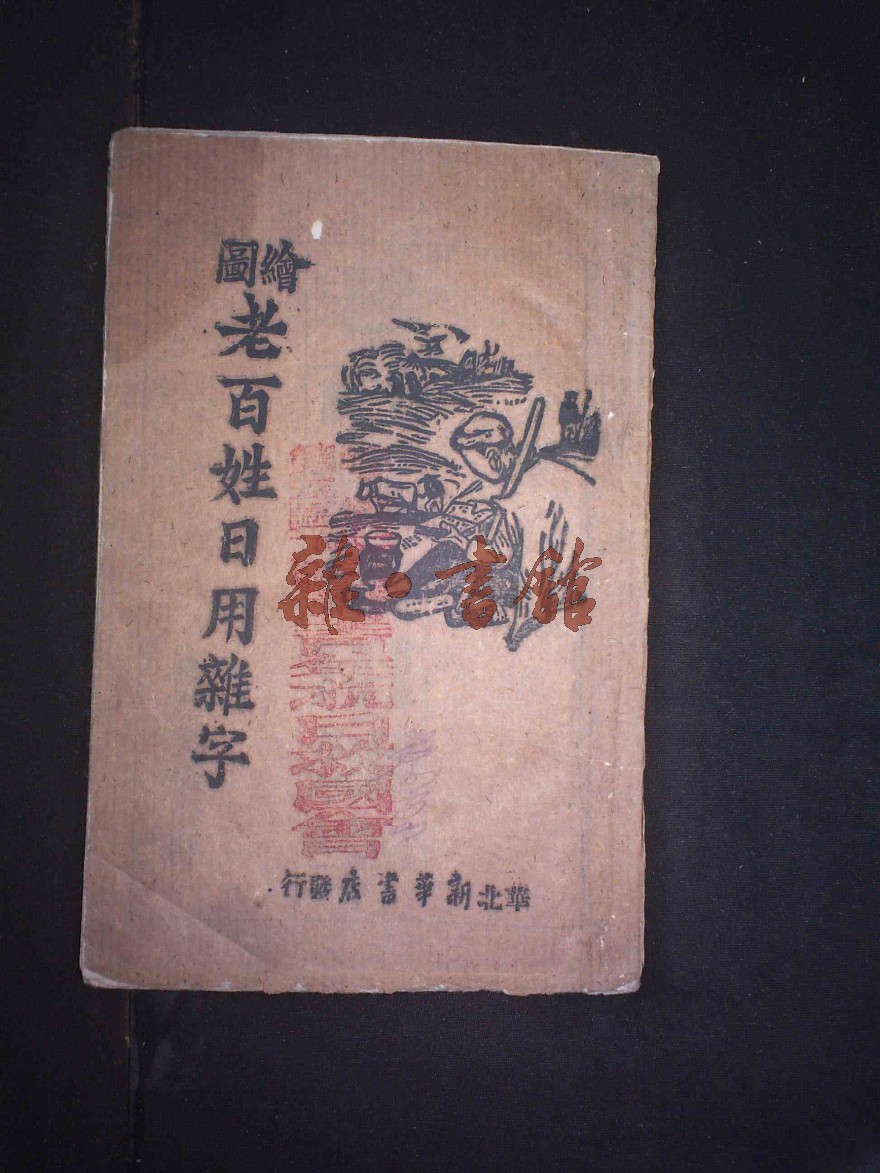 繪圖
老百姓日用雜字
華北新華書店發行
雜·書館
國會